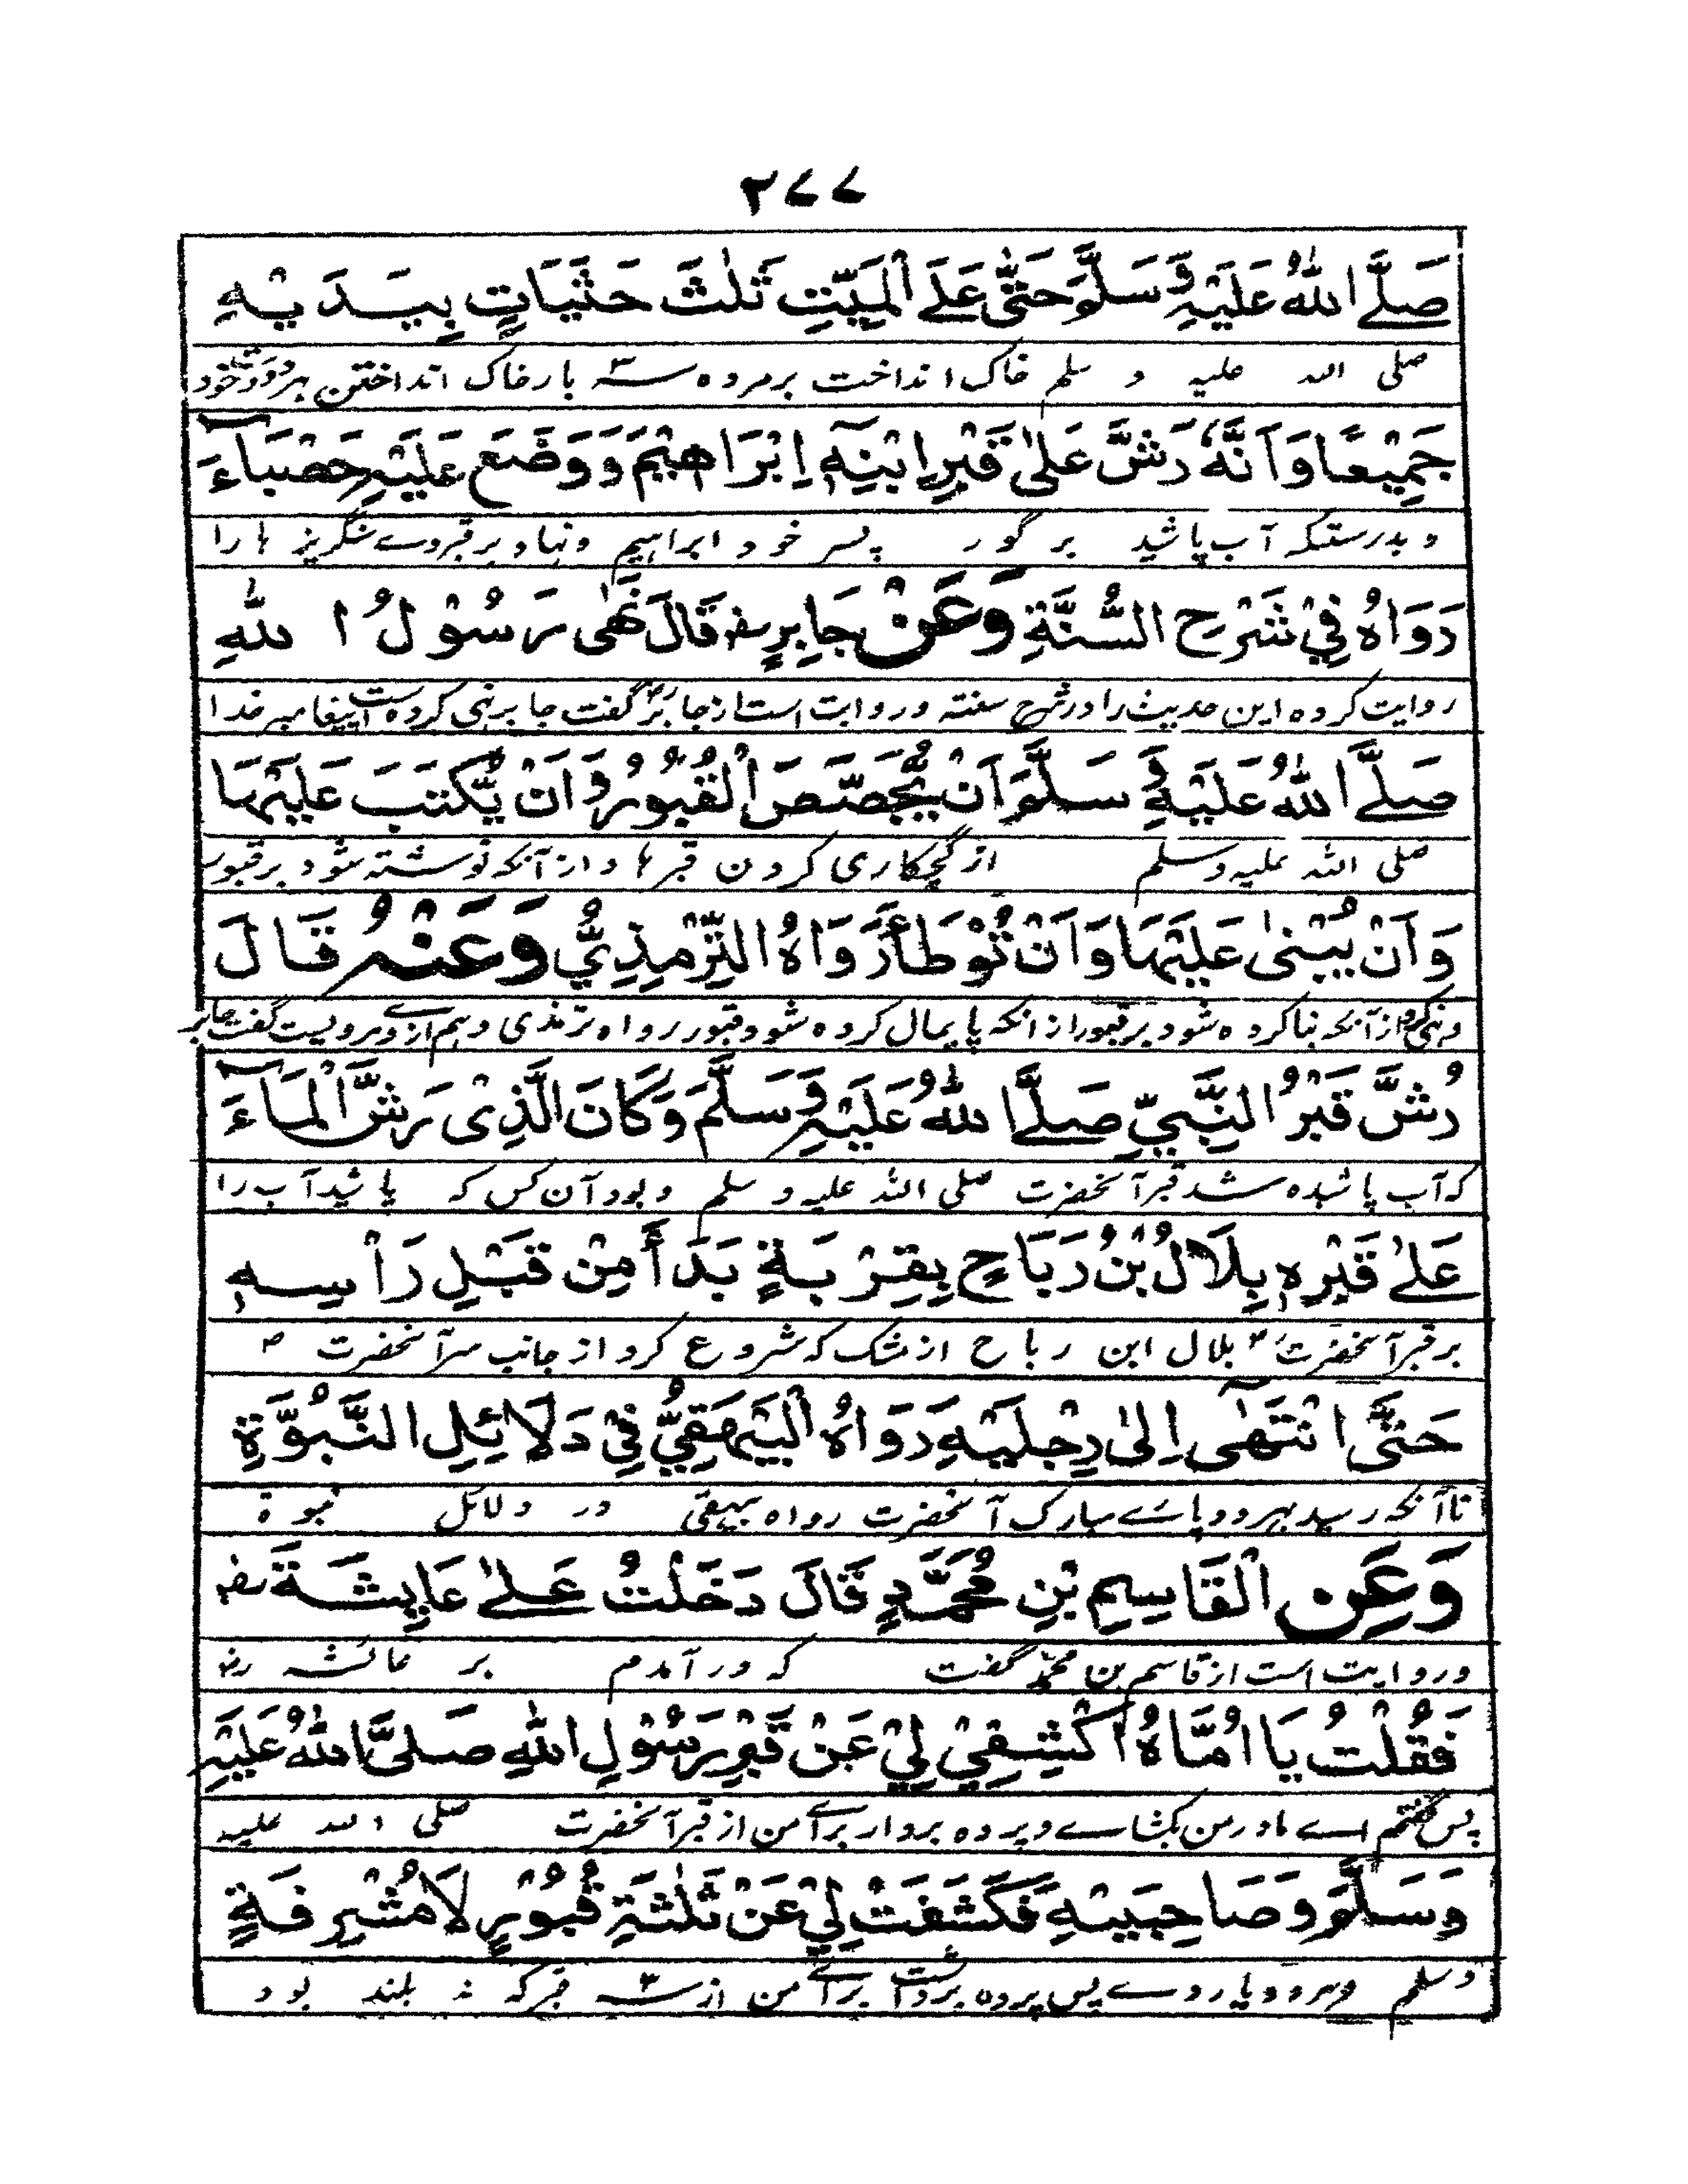 ٢٧٧
صَلَّى اللهُ عَلَيْهِ وَسَلَّمَ حَثٰى عَلَى الْمَيِّتِ ثَلٰثَ حَثَيَاتٍ بِيَدَيْهِ
صلی اللہ علیہ و سلم خاک انداخت برمردہ سہ بار خاک انداختن بہر دو دست خود
جَمِيْعًا وَاَنَّهٗ رَشَّ عَلٰى قَبْرِ ابْنِهٖ اِبْرَاهِيْمَ وَوَضَعَ عَلَيْهِ حَصْبَاءَ
و بدرستیکہ آب پاشید بر گور پسر خود ابراہیم و نہاد بر قبر وے سنگریزہا را
رَوَاهُ فِيْ شَرْحِ السُّنَّةِ وَعَنْ جَابِرٍ رض قَالَ نَهٰى رَسُوْلُ اللهِ
روایت کردہ این حدیث را در شرح سنتہ و روایت است از جابر رض گفت جابر نہی کردہ است پیغامبر خدا
صَلَّى اللهُ عَلَيْهِ وَسَلَّمَ اَنْ يُّجَصَّصَ الْقُبُوْرُ وَاَنْ يُّكْتَبَ عَلَيْهَا
صلی اللہ علیہ وسلم از گچکاری کردن قبرہا و از آنکہ نوشتہ شود بر قبور
وَاَنْ يُبْنٰى عَلَيْهَا وَاَنْ تُوْطَأَ رَوَاهُ التِّرْمِذِيُّ وَعَنْهُ قَالَ
و نہی کرد از آنکہ بنا کردہ شود بر قبور از انکہ پایمال کردہ شود قبور رواہ ترمذی و ہم از وے مرویست گفت جابر
رُشَّ قَبْرُ النَّبِيِّ صَلَّى اللهُ عَلَيْهِ وَسَلَّمَ وَكَانَ الَّذِيْ رَشَّ الْمَاءَ
کہ آب پاشیدہ شد قبر آنحضرت صلی اللہ علیہ و سلم و بود آن کس کہ پاشید آب را
عَلٰى قَبْرِهٖ بِلَالُ بْنُ رَبَاحٍ بِقِرْبَةٍ بَدَأَ مِنْ قَبْلِ رَاْسِهٖ
بر قبر آنحضرت ؐ بلال ابن رباح از مشک کہ شروع کرد از جانب سر آنحضرت ؐ
حَتَّى انْتَهٰى اِلٰى رِجْلَيْهِ رَوَاهُ الْبَيْهَقِيُّ فِيْ دَلَائِلِ النَّبُوَّةِ
تا آنکہ رسید بہر دو پائے مبارک آنحضرت رواہ بیہقی در دلائل نبوۃ
وَعَنِ الْقَاسِمِ بْنِ مُحَمَّدٍ قَالَ دَخَلْتُ عَلٰى عَايِشَةَ رض
و روایت است از قاسم بن محمد گفت کہ در آمدم بر عائشہ رض
فَقُلْتُ يَا اُمَّاهُ اكْشِفِيْ لِيْ عَنْ قَبْرِ رَسُوْلِ اللهِ صَلَّى اللهُ عَلَيْهِ
پس گفتم اے مادر من بکشاے و پردہ بردار برائے من از قبر آنحضرت صلی اللہ علیہ
وَسَلَّمَ وَصَاحِبَيْهِ فَكَشَفَتْ لِيْ عَنْ ثَلٰثَةِ قُبُوْرٍ لَا مُشْرِفَةٍ
وسلم و ہر دو یار وے پس پردہ برداشت برائے من از سہ قبر کہ نہ بلند بود